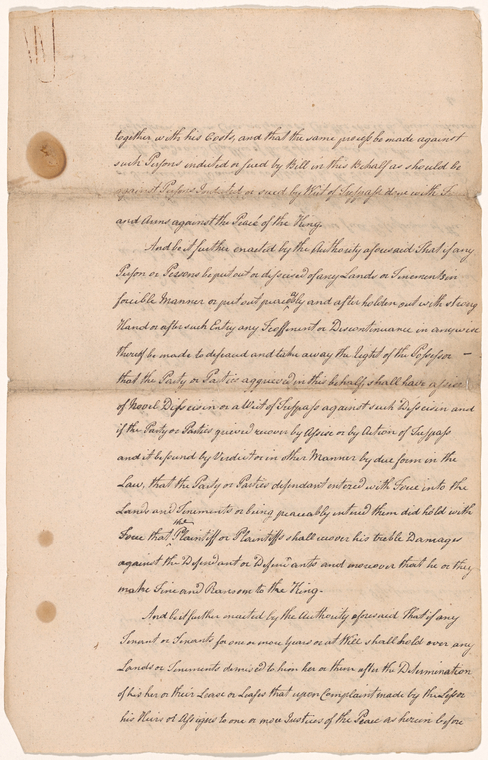 together with his Costs, and that the same process be made against
such Persons indicted or sued by Bill in this Behalf as should be
against Persons Indicted or sued by Writ of Trespass done with
and Arms, against the Peace of the King.
And be it further enacted by the Authority aforesaid That if any
Person or Persons be put out or disseised of any Lands or Tenements in
forcible Manner or put out peaceably and after holden out with strong
Hand or after such Entry any Feoffment or Discontinuance in anywise
thereof be made to defraud and take away the Right of the Possessor –
that the Party or Parties aggrieved in this behalf shall have assise
of Novel Disseisin or a Writ of Trespass against such Disseisin and
if the Party or Parties grieved recover by Assise or by Action of Trespass
and it be found by Verdict or in other Manner by due form in the
Law, that the Party or Parties defendant entered with Force into the
Lands and Tenements or being peaceably entered them did hold with
Force that the Plaintiff or Plaintiffs shall recover his treble Damages
against the Defendant or Defendants and moreover that he or they
make Fine and Ransom to the King.
And be it further enacted by the Authority aforesaid That if any
Tenant or Tenants for one or more Years or at Will shall hold over any
Lands or Tenements demised to him her or them after the Determination
of his her or their Lease or Leases that upon Complaint made by the Lessor
his Heirs or Assigns to one or more Justices of the Peace as herein before